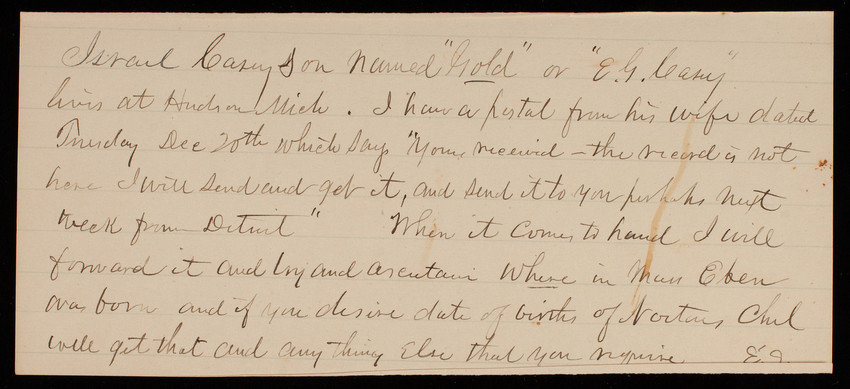 Israel Casey Son named "Gold" or "E.G. Casey"
lives at Hudson Mich. I have a postal from his wife dated
Tuesday Dec 20th which says "Yours received – the record is not
here I will send and get it, and send it to you perhaps next
week from Detroit" When it comes to hand I will
forward it and try and ascertain where in Mass Eben
was born and if you desire date of births of Nortons Chil
will get that and any thing Else that you require